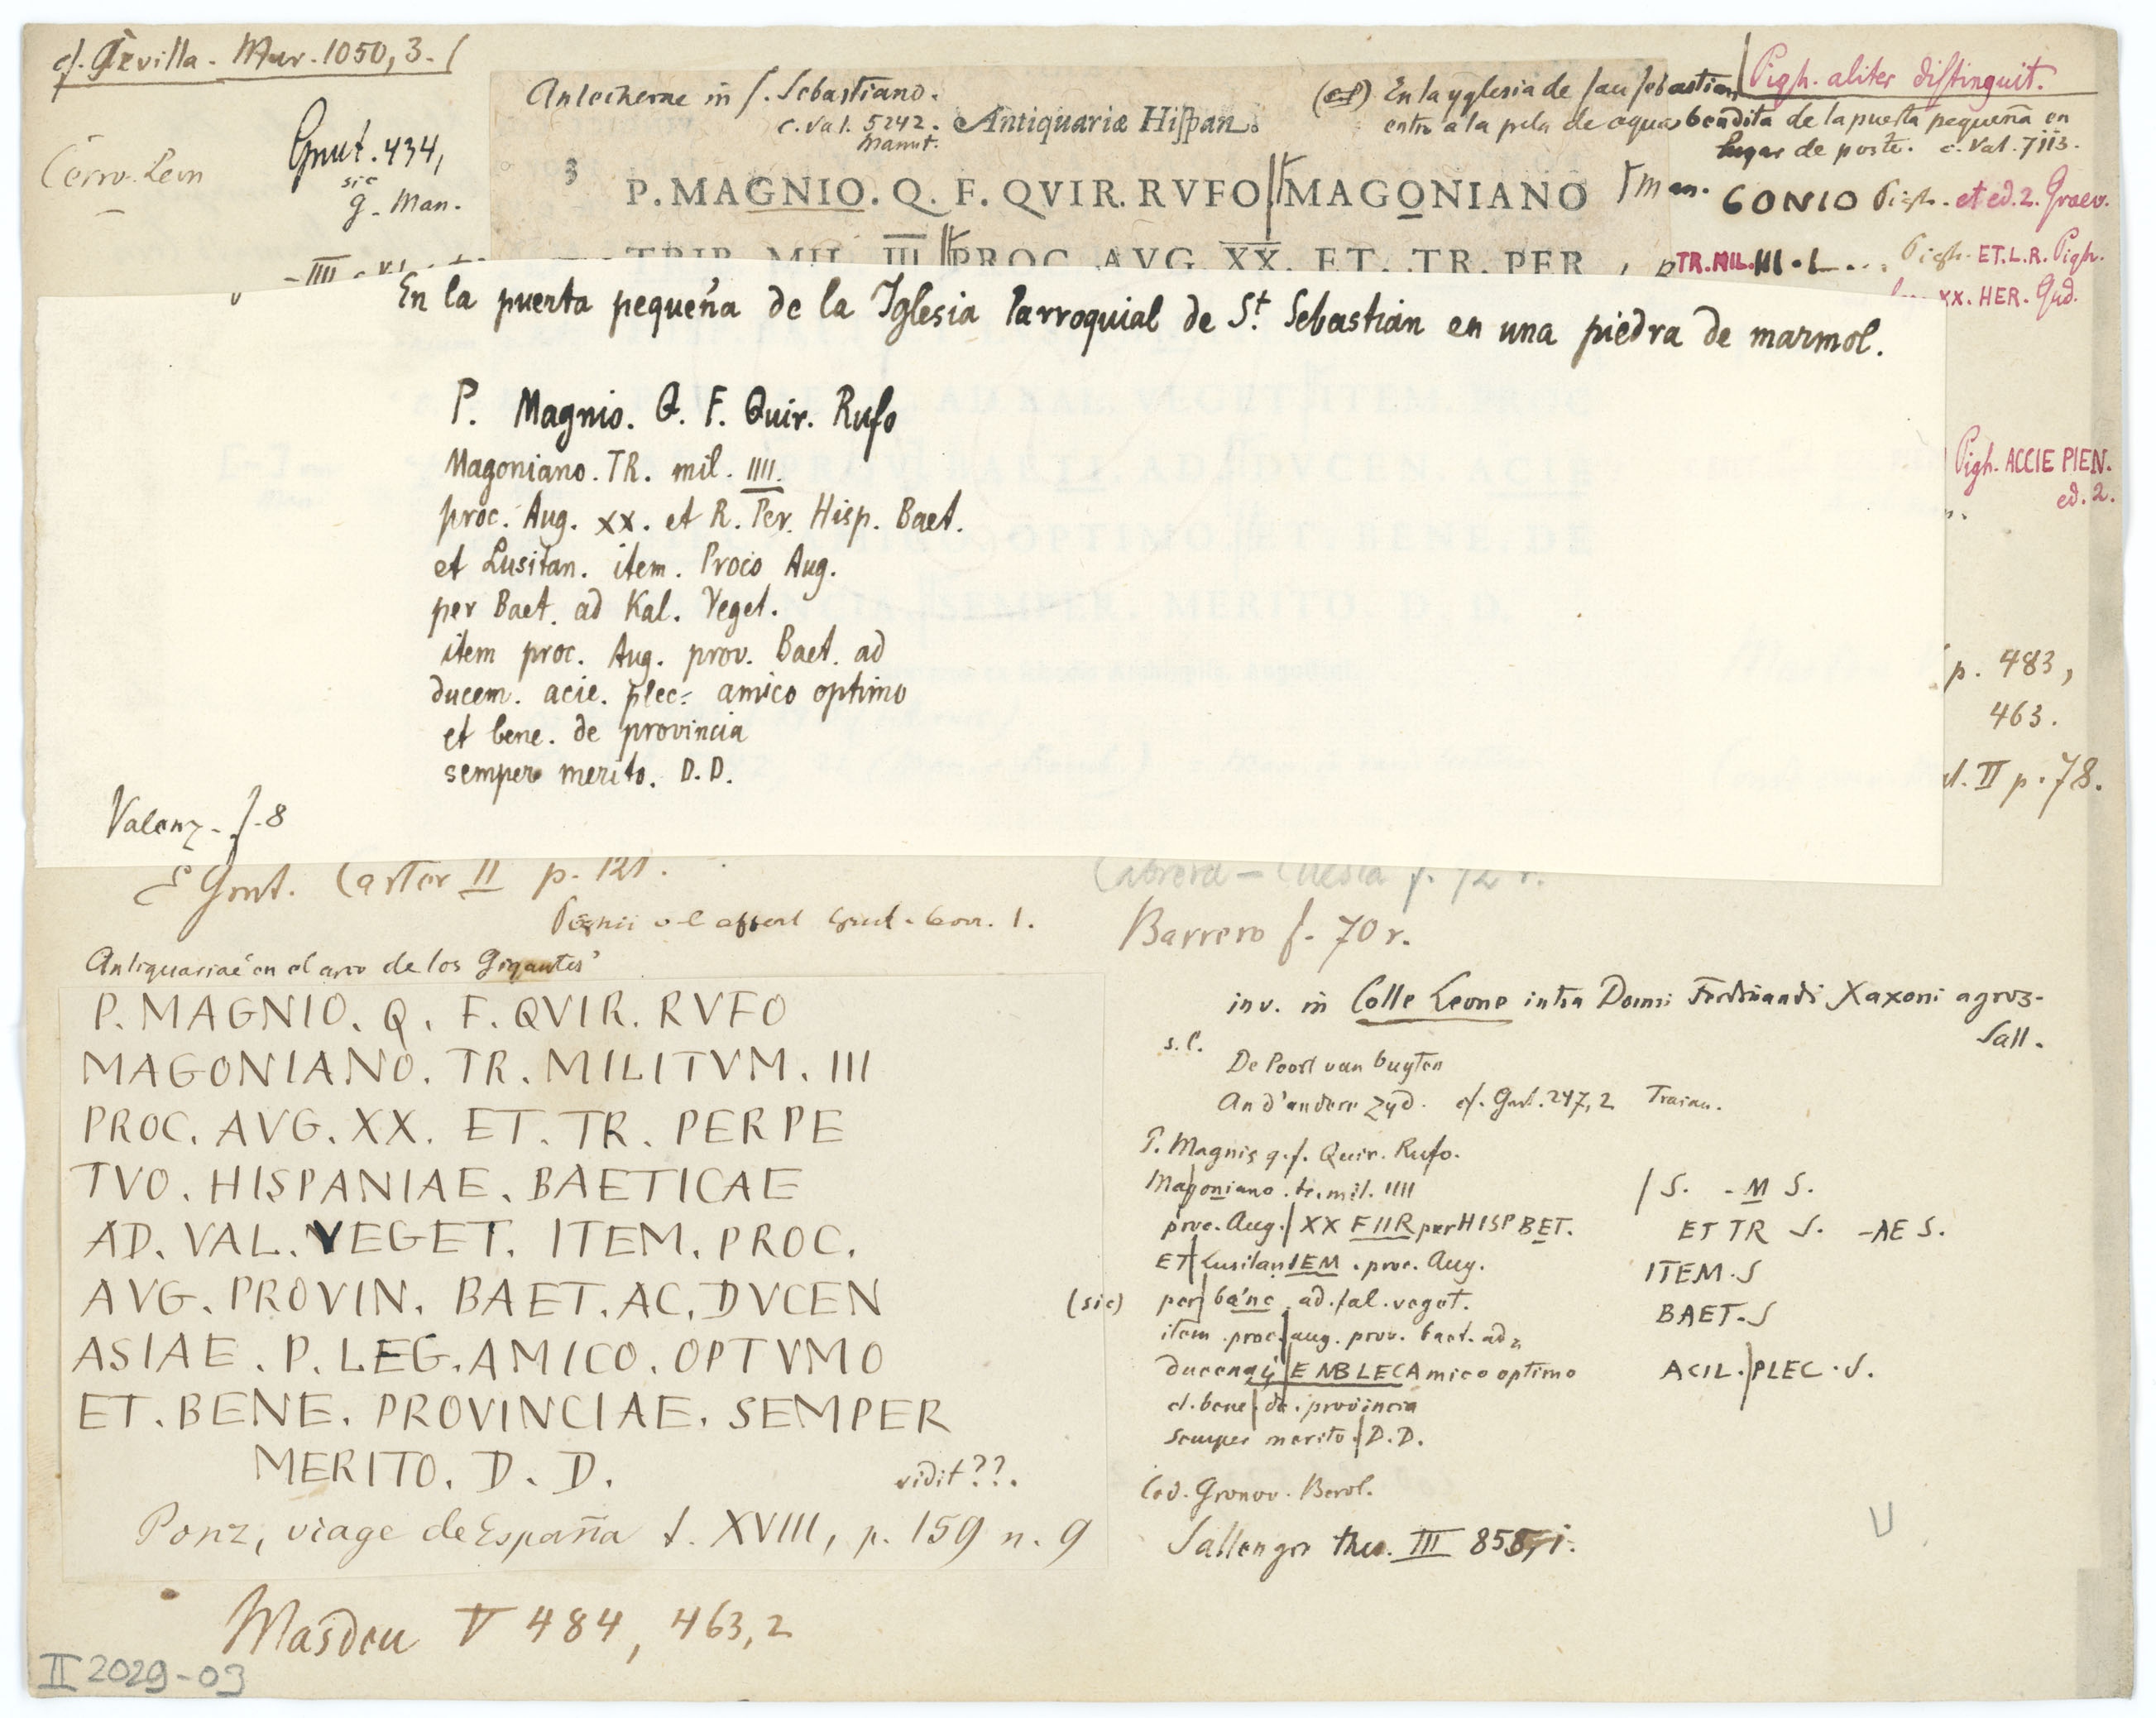 cf. Sevilla. Mur. 1050, 3.
Cerro Leon
Grut. 434,
sic
g. Man.
Antecherae in S. Sebastiano.
c. Vat. 5242.
Manut.
Antiquariæ Hispan.
En la yglesia de san sebastian
entro a la pila de agua bendita de la puerta pequeña en
lugar de poste. c. Vat. 7113.
Pigh. aliter distinguit.
3 P. MAGNIO. Q. F. QVIR. RVFO MAGONIANO
Man. GONIO Pigh. et ed. 2. Graev.
TRIB. MIL. III PROC. AVG. XX. ET. TR. PER
TR. MIL. III. L... Pigh. ET. L. R. Pigh.
XX. HER. Gud.
En la puerta pequeña de la Iglesia Parroquial de St. Sebastian en una piedra de marmol.
P. Magnio. Q. F. Quir. Rufo
Magoniano. TR. mil. IIII.
proc. Aug. XX. et R. Per. Hisp. Baet.
et Lusitan. item. Procio Aug.
per Baet. ad Kal. Veget.
item proc. Aug. prov. Baet. ad
ducem. acie. plec= amico optimo
et bene. de provincia
sempere merito. D.D.
Valenz. f. 8
Pigh. ACCIE PIEN.
ed. 2.
p. 483,
463.
II p. 78.
E Grut. Carter II p. 121.
Cabrera - Cuesta f. 72 r.
Barrero f. 70 r.
Antiquariae en el arco de los Gigantes
P. MAGNIO. Q. F. QVIR. RVFO
MAGONIANO. TR. MILITVM. III
PROC. AVG. XX. ET. TR. PERPE
TVO. HISPANIAE. BAETICAE
AD. VAL. VEGET. ITEM. PROC.
AVG. PROVIN. BAET. AC. DVCEN
ASIAE. P. LEG. AMICO. OPTVMO
ET. BENE. PROVINCIAE. SEMPER
MERITO. D. D.
vidit??.
Ponz, viage de España t. XVIII, p. 159 n. 9
Masdeu V 484, 463,2
II 2029-03
inv. in Colle Leone intra Domni Ferdinandi Xaxoni agros.
Sall.
s. l.
De Poort van buyten
An d'andere Zyd. cf. Grut. 247,2 Traian.
P. Magnis q. f. Quir. Rufo.
Magoniano. tr. mil. IIII / S. - M S.
proc. Aug. XX F IIR per HISP BET. ET TR S. -AE S.
ET Lusitan IEM. proc. Aug. ITEM. S
(sic) per banc ad. fal. veget. BAET. S
item. proc. aug. prov. baet. ad=
E NB LEC Amico optimo ACIL. PLEC. S.
et. bene. de. provincia
semper merito. D.D.
Cod. Gronov. Berol.
Sallengre thes. III
U